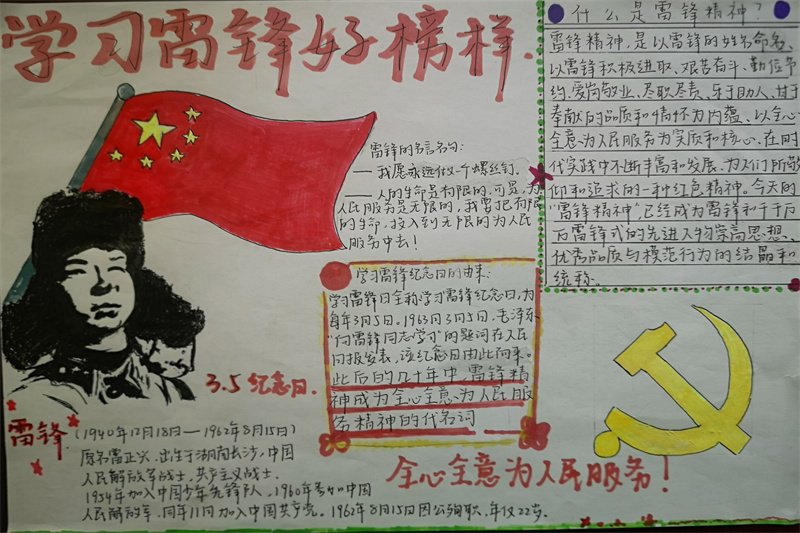 学习雷锋好榜样.
什么是雷锋精神?
雷锋精神,是以雷锋的姓名命名、
以雷锋积极进取、艰苦奋斗、勤俭节
约、爱岗敬业、尽职尽责、乐于助人、甘于
奉献的品质和情怀为内蕴、以全心
全意为人民服务为实质和核心、在时
代实践中不断丰富和发展、为人们所敬
仰和追求的一种红色精神。今天的
“雷锋精神”,已经成为雷锋和千千万
万雷锋式的先进人物崇高思想、
优秀品质与模范行为的结晶和
统称。
雷锋的名言名句:
— 我愿永远做一个螺丝钉.
— 人的生命是有限的,可是,为
人民服务是无限的,我要把有限
的生命,投入到无限的为人民
服务中去!
学习雷锋纪念日的由来:
学习雷锋日全称学习雷锋纪念日,为
每年3月5日。1963年3月5日,毛泽东
“向雷锋同志学习”的题词在人民
日报发表,该纪念日由此而来。
此后的几十年中,雷锋精
神成为全心全意为人民服
务精神的代名词
3.5纪念日.
雷锋
(1940年12月18日—1962年8月15日)
原名雷正兴.出生于湖南长沙,中国
人民解放军战士,共产主义战士.
1954年加入中国少年先锋队,1960年参加中国
人民解放军.同年11月加入中国共产党。1962年8月15日因公殉职,年仅22岁。
全心全意为人民服务!